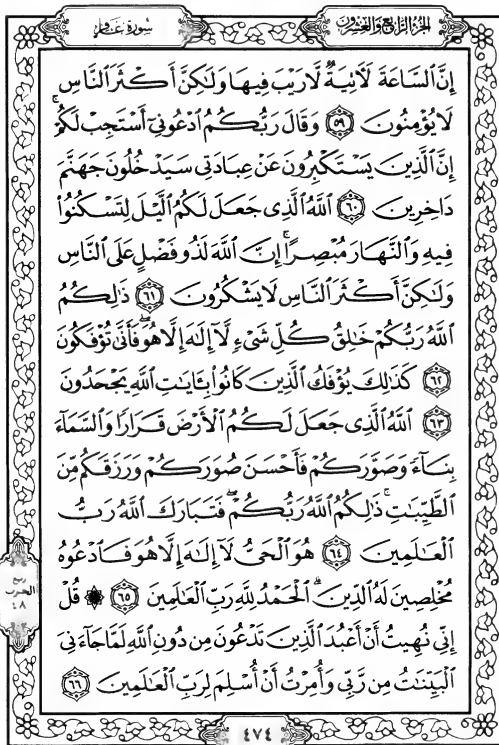 الجزء الرابع والعشرون
سورة غافر
إِنَّ ٱلسَّاعَةَ لَءَاتِيَةٌ لَّا رَيْبَ فِيهَا وَلَٰكِنَّ أَكْثَرَ ٱلنَّاسِ
لَا يُؤْمِنُونَ ٥٩ وَقَالَ رَبُّكُمُ ٱدْعُونِىٓ أَسْتَجِبْ لَكُمْ ۚ
إِنَّ ٱلَّذِينَ يَسْتَكْبِرُونَ عَنْ عِبَادَتِى سَيَدْخُلُونَ جَهَنَّمَ
دَاخِرِينَ ٦٠ ٱللَّهُ ٱلَّذِى جَعَلَ لَكُمُ ٱلَّيْلَ لِتَسْكُنُوا۟
فِيهِ وَٱلنَّهَارَ مُبْصِرًا ۚ إِنَّ ٱللَّهَ لَذُو فَضْلٍ عَلَى ٱلنَّاسِ
وَلَٰكِنَّ أَكْثَرَ ٱلنَّاسِ لَا يَشْكُرُونَ ٦١ ذَٰلِكُمُ
ٱللَّهُ رَبُّكُمْ خَٰلِقُ كُلِّ شَىْءٍ لَّآ إِلَٰهَ إِلَّا هُوَ ۖ فَأَنَّىٰ تُؤْفَكُونَ
٦٢ كَذَٰلِكَ يُؤْفَكُ ٱلَّذِينَ كَانُوا۟ بِـَٔايَٰتِ ٱللَّهِ يَجْحَدُونَ
٦٣ ٱللَّهُ ٱلَّذِى جَعَلَ لَكُمُ ٱلْأَرْضَ قَرَارًا وَٱلسَّمَآءَ
بِنَآءً وَصَوَّرَكُمْ فَأَحْسَنَ صُوَرَكُمْ وَرَزَقَكُم مِّنَ
ٱلطَّيِّبَٰتِ ۚ ذَٰلِكُمُ ٱللَّهُ رَبُّكُمْ ۖ فَتَبَارَكَ ٱللَّهُ رَبُّ
ٱلْعَٰلَمِينَ ٦٤ هُوَ ٱلْحَىُّ لَآ إِلَٰهَ إِلَّا هُوَ فَٱدْعُوهُ
مُخْلِصِينَ لَهُ ٱلدِّينَ ۗ ٱلْحَمْدُ لِلَّهِ رَبِّ ٱلْعَٰلَمِينَ ٦٥ ۞ قُلْ
إِنِّى نُهِيتُ أَنْ أَعْبُدَ ٱلَّذِينَ تَدْعُونَ مِن دُونِ ٱللَّهِ لَمَّا جَآءَنِىَ
ٱلْبَيِّنَٰتُ مِن رَّبِّى وَأُمِرْتُ أَنْ أُسْلِمَ لِرَبِّ ٱلْعَٰلَمِينَ ٦٦
ربع
الحزب
٤٨
٤٧٤